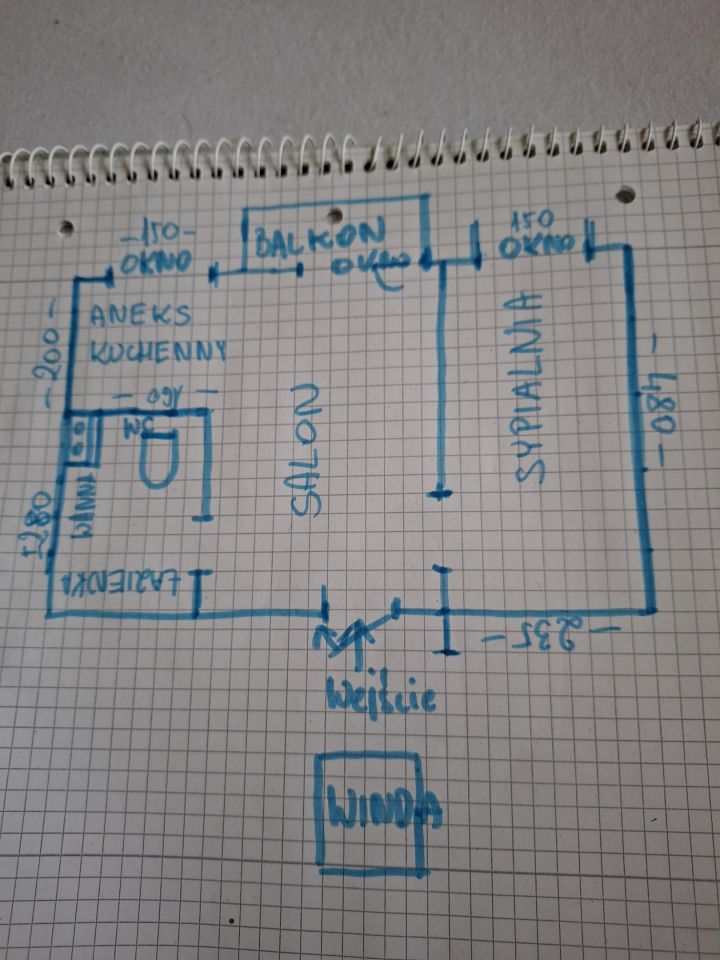 -150-
OKNO
BALKON
OKNO
150
OKNO
ANEKS
KUCHENNY
-200-
-160-
SALON
SYPIALNIA
-480-
WANNA
-280
ŁAZIENKA
-235-
Wejście
WINDA